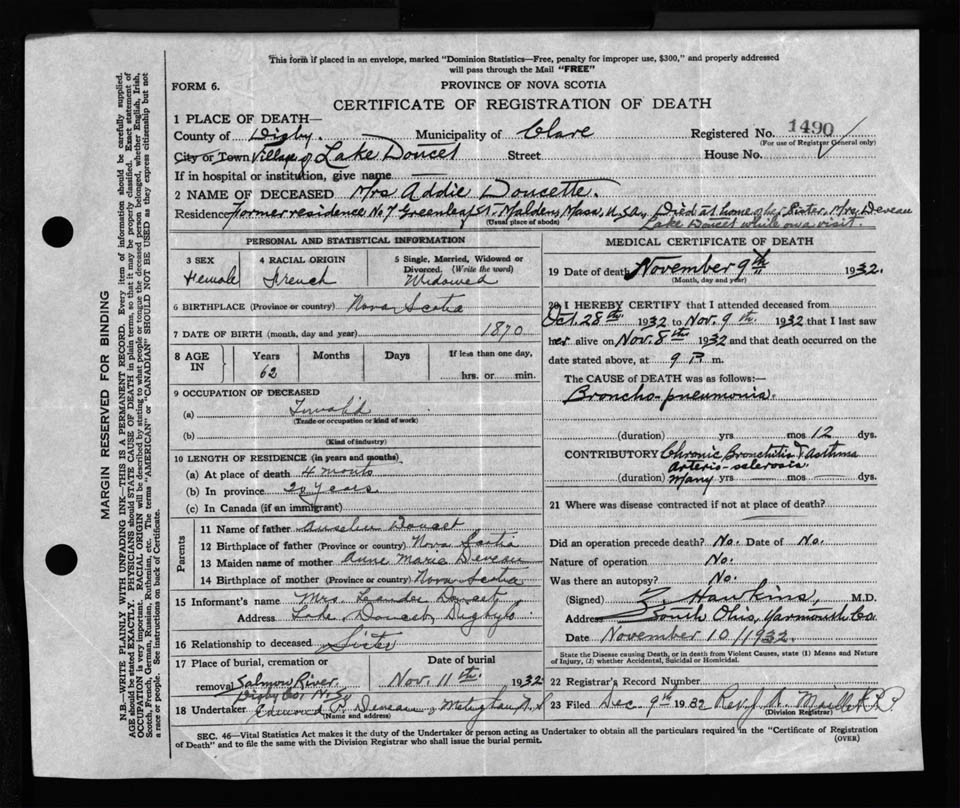 This form if placed in an envelope, marked "Dominion Statistics—Free, penalty for improper use, $300," and properly addressed
will pass through the Mail "FREE"
FORM 6.
PROVINCE OF NOVA SCOTIA
CERTIFICATE OF REGISTRATION OF DEATH
1 PLACE OF DEATH—
County of Digby. Municipality of Clare Registered No. 1490
(For use of Registrar General only)
City or Town Village of Lake Doucet Street House No.
If in hospital or institution, give name
2 NAME OF DECEASED Mrs Addie Doucette.
Residence Former residence No 7 Greenleaf St. Malden, Mass, U.S.A. Died at home of her sister Mrs Deveau
(Usual place of abode) Lake Doucet while on a visit.
PERSONAL AND STATISTICAL INFORMATION
3 SEX 4 RACIAL ORIGIN 5 Single, Married, Widowed or
Divorced. (Write the word)
Female French Widowed
6 BIRTHPLACE (Province or country) Nova Scotia
7 DATE OF BIRTH (month, day and year) 1870
8 AGE IN Years Months Days If less than one day,
62 hrs. or min.
9 OCCUPATION OF DECEASED
(a) Invalid
(Trade or occupation or kind of work)
(b)
(Kind of industry)
10 LENGTH OF RESIDENCE (in years and months)
(a) At place of death 4 months
(b) In province 20 years
(c) In Canada (if an immigrant)
Parents
11 Name of father Doucet
12 Birthplace of father (Province or country) Nova Scotia
13 Maiden name of mother Anne Marie Deveau
14 Birthplace of mother (Province or country) Nova Scotia
15 Informant's name Mrs. Doucet
Address Lake Doucet, Digby Co
16 Relationship to deceased Sister
17 Place of burial, cremation or
removal Salmon River
Digby Co. N.S.
Date of burial
Nov. 11th. 1932
18 Undertaker Edmond Deveau, Meteghan N.S
(Name and address)
MEDICAL CERTIFICATE OF DEATH
19 Date of death November 9th 1932.
(Month, day and year)
20 I HEREBY CERTIFY that I attended deceased from
Oct. 28th 1932 to Nov. 9th 1932 that I last saw
her alive on Nov. 8th 1932 and that death occurred on the
date stated above, at 9 P. m.
The CAUSE OF DEATH was as follows:—
Broncho-pneumonia.
(duration) yrs mos 12 dys.
CONTRIBUTORY Chronic Bronchitis & Asthma
arterio-sclerosis
(duration) many yrs mos dys.
21 Where was disease contracted if not at place of death?
Did an operation precede death? No. Date of No.
Nature of operation No.
Was there an autopsy? No.
(Signed) Hawkins, M.D.
Address South Ohio, Yarmouth Co.
Date November 10/1932.
State the Disease causing Death, or in death from Violent Causes, state (1) Means and Nature
of Injury, (2) whether Accidental, Suicidal or Homicidal.
22 Registrar's Record Number
23 Filed Dec 9th 1932 Rev J. A. Maillet P.P.
(Division Registrar)
SEC. 46—Vital Statistics Act makes it the duty of the Undertaker or person acting as Undertaker to obtain all the particulars required in the "Certificate of Registration
of Death" and to file the same with the Division Registrar who shall issue the burial permit.
(OVER)
MARGIN RESERVED FOR BINDING
N.B.—WRITE PLAINLY WITH UNFADING INK—THIS IS A PERMANENT RECORD. Every item of information should be carefully supplied.
AGE should be stated EXACTLY. PHYSICIANS should STATE CAUSE OF DEATH in plain terms, so that it may be properly classified. Exact statement of
OCCUPATION is very important. RACIAL ORIGIN will be described by stating to what people or tongue the deceased person belonged, whether English, Irish,
Scotch, French, German, Russian, Ruthenian, etc. The terms "AMERICAN" or "CANADIAN" SHOULD NOT BE USED as they express citizenship but not
a race or people. See instructions on back of Certificate.